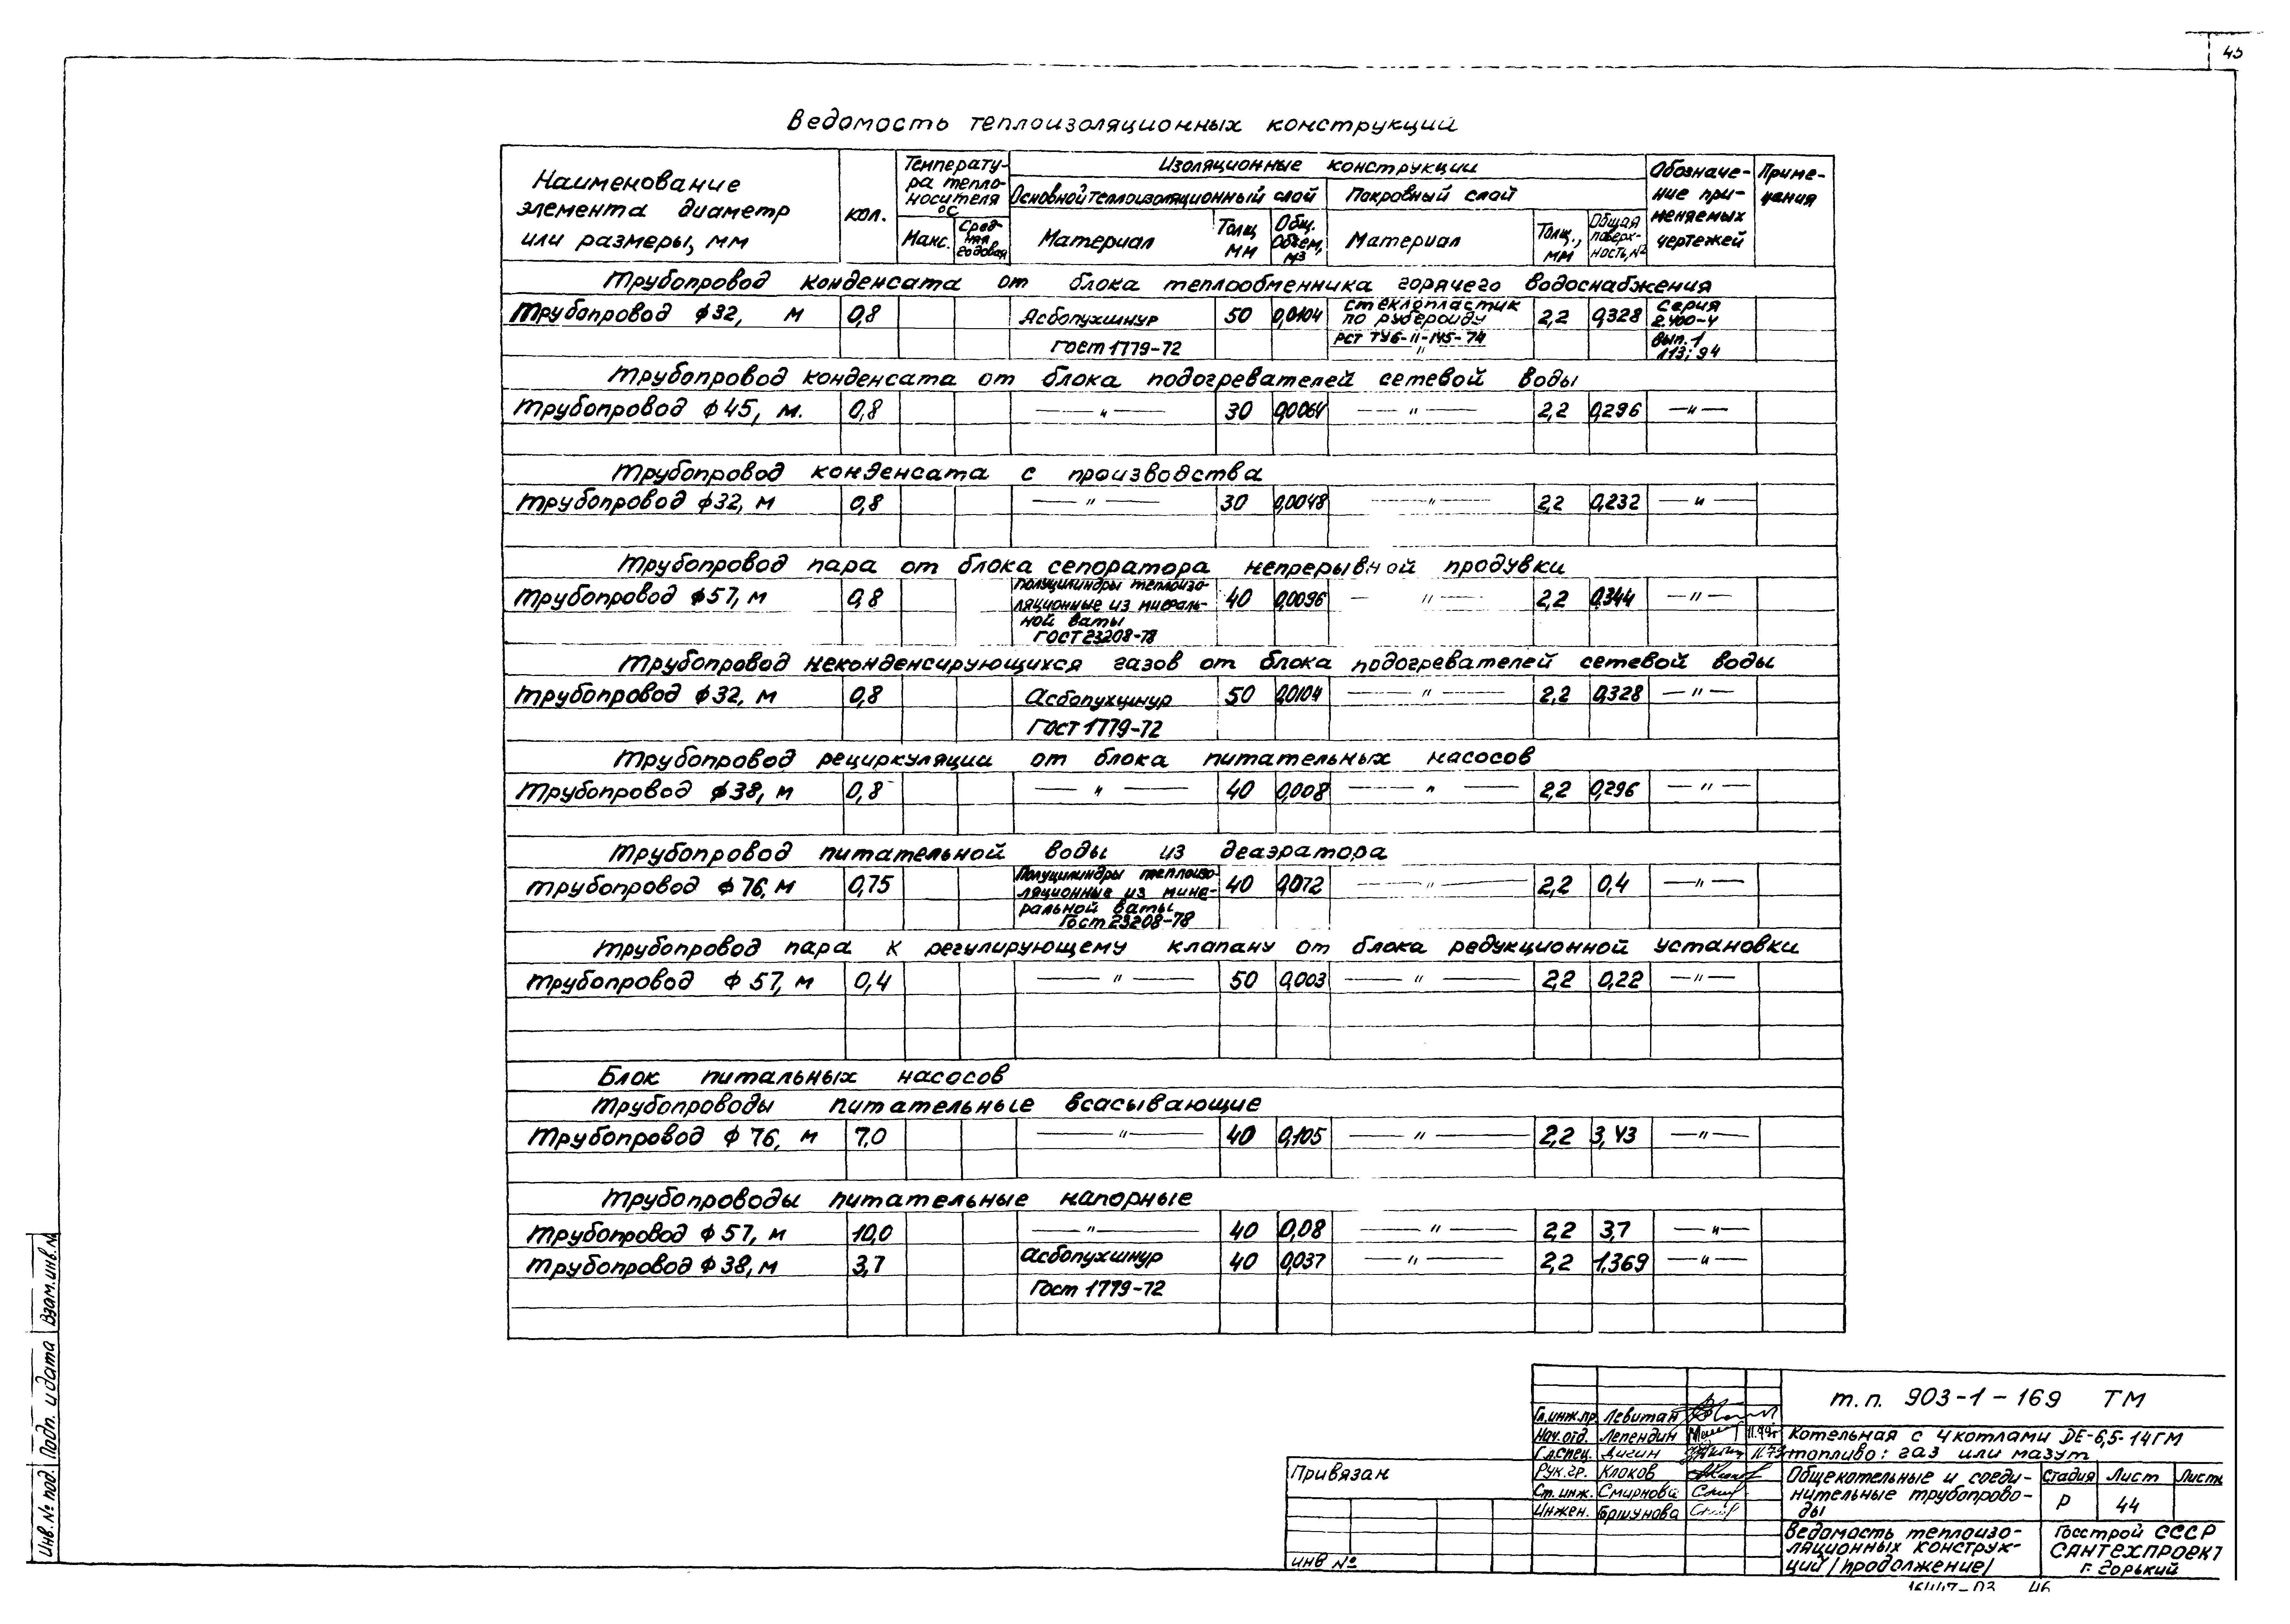 45
Ведомость теплоизоляционных конструкций
Наименование элемента диаметр или размеры, мм
кол.
Температура теплоносителя °С
Макс.
Средняя годовая
Изоляционные конструкции
Основной теплоизоляционный слой
Материал
Толщ мм
Общ. объем, м3
Покровный слой
Материал
Толщ., мм
Общая поверхность, м2
Обозначение применяемых чертежей
Примечания
Трубопровод конденсата от блока теплообменника горячего водоснабжения
Трубопровод ф32, м 0,8 Асбопухшнур 50 0,0104 стеклопластик по рубероиду 2,2 0,328 серия 2.400-4
ГОСТ 1779-72 РСТ ТУ6-11-145-74 " вып.1 113; 94
Трубопровод конденсата от блока подогревателей сетевой воды
Трубопровод ф45, м. 0,8 —"— 30 0,0064 —"— 2,2 0,296 —"—
Трубопровод конденсата с производства
Трубопровод ф32, м 0,8 —"— 30 0,0048 —"— 2,2 0,232 —"—
Трубопровод пара от блока сепоратора непрерывной продувки
Трубопровод ф57, м 0,8 полуцилиндры теплоизоляционные из минеральной ваты 40 0,0096 —"— 2,2 0,344 —"—
ГОСТ 23208-78
Трубопровод неконденсирующихся газов от блока подогревателей сетевой воды
Трубопровод ф32, м 0,8 Асбопухшнур 50 0,0104 —"— 2,2 0,328 —"—
ГОСТ 1779-72
Трубопровод рециркуляции от блока питательных насосов
Трубопровод ф38, м 0,8 —"— 40 0,008 —"— 2,2 0,296 —"—
Трубопровод питательной воды из деаэратора
Трубопровод ф76, м 0,75 Полуцилиндры теплоизоляционные из минеральной ваты 40 0,072 —"— 2,2 0,4 —"—
Гост 23208-78
Трубопровод пара к регулирующему клапану от блока редукционной установки
Трубопровод ф57, м 0,4 —"— 50 0,003 —"— 2,2 0,22 —"—
Блок питальных насосов
Трубопроводы питательные всасывающие
Трубопровод ф76, м 7,0 —"— 40 0,105 —"— 2,2 3,43 —"—
Трубопроводы питательные напорные
Трубопровод ф57, м 10,0 —"— 40 0,08 —"— 2,2 3,7 —"—
Трубопровод ф38, м 3,7 Асбопухшнур 40 0,037 —"— 2,2 1,369 —"—
Гост 1779-72
Инв. № под. Подп. и дата Взам.инв.№
Привязан
инв №
Гл.инж.пр. Левитан
Нач.отд. Лепендин 11.79г
Гл.спец. Дигин 11.79
Рук.гр. Клоков
Ст.инж. Смирнова
Инжен. Горшунова
т.п. 903-1-169 ТМ
Котельная с 4 котлами ДЕ-6,5-14ГМ
топливо: газ или мазут
Общекотельные и соеди-
нительные трубопрово-
ды
Стадия Лист Листов
Р 44
Ведомость теплоизо-
ляционных конструк-
ций /продолжение/
Госстрой СССР
САНТЕХПРОЕКТ
г. Горький
16447-03 46